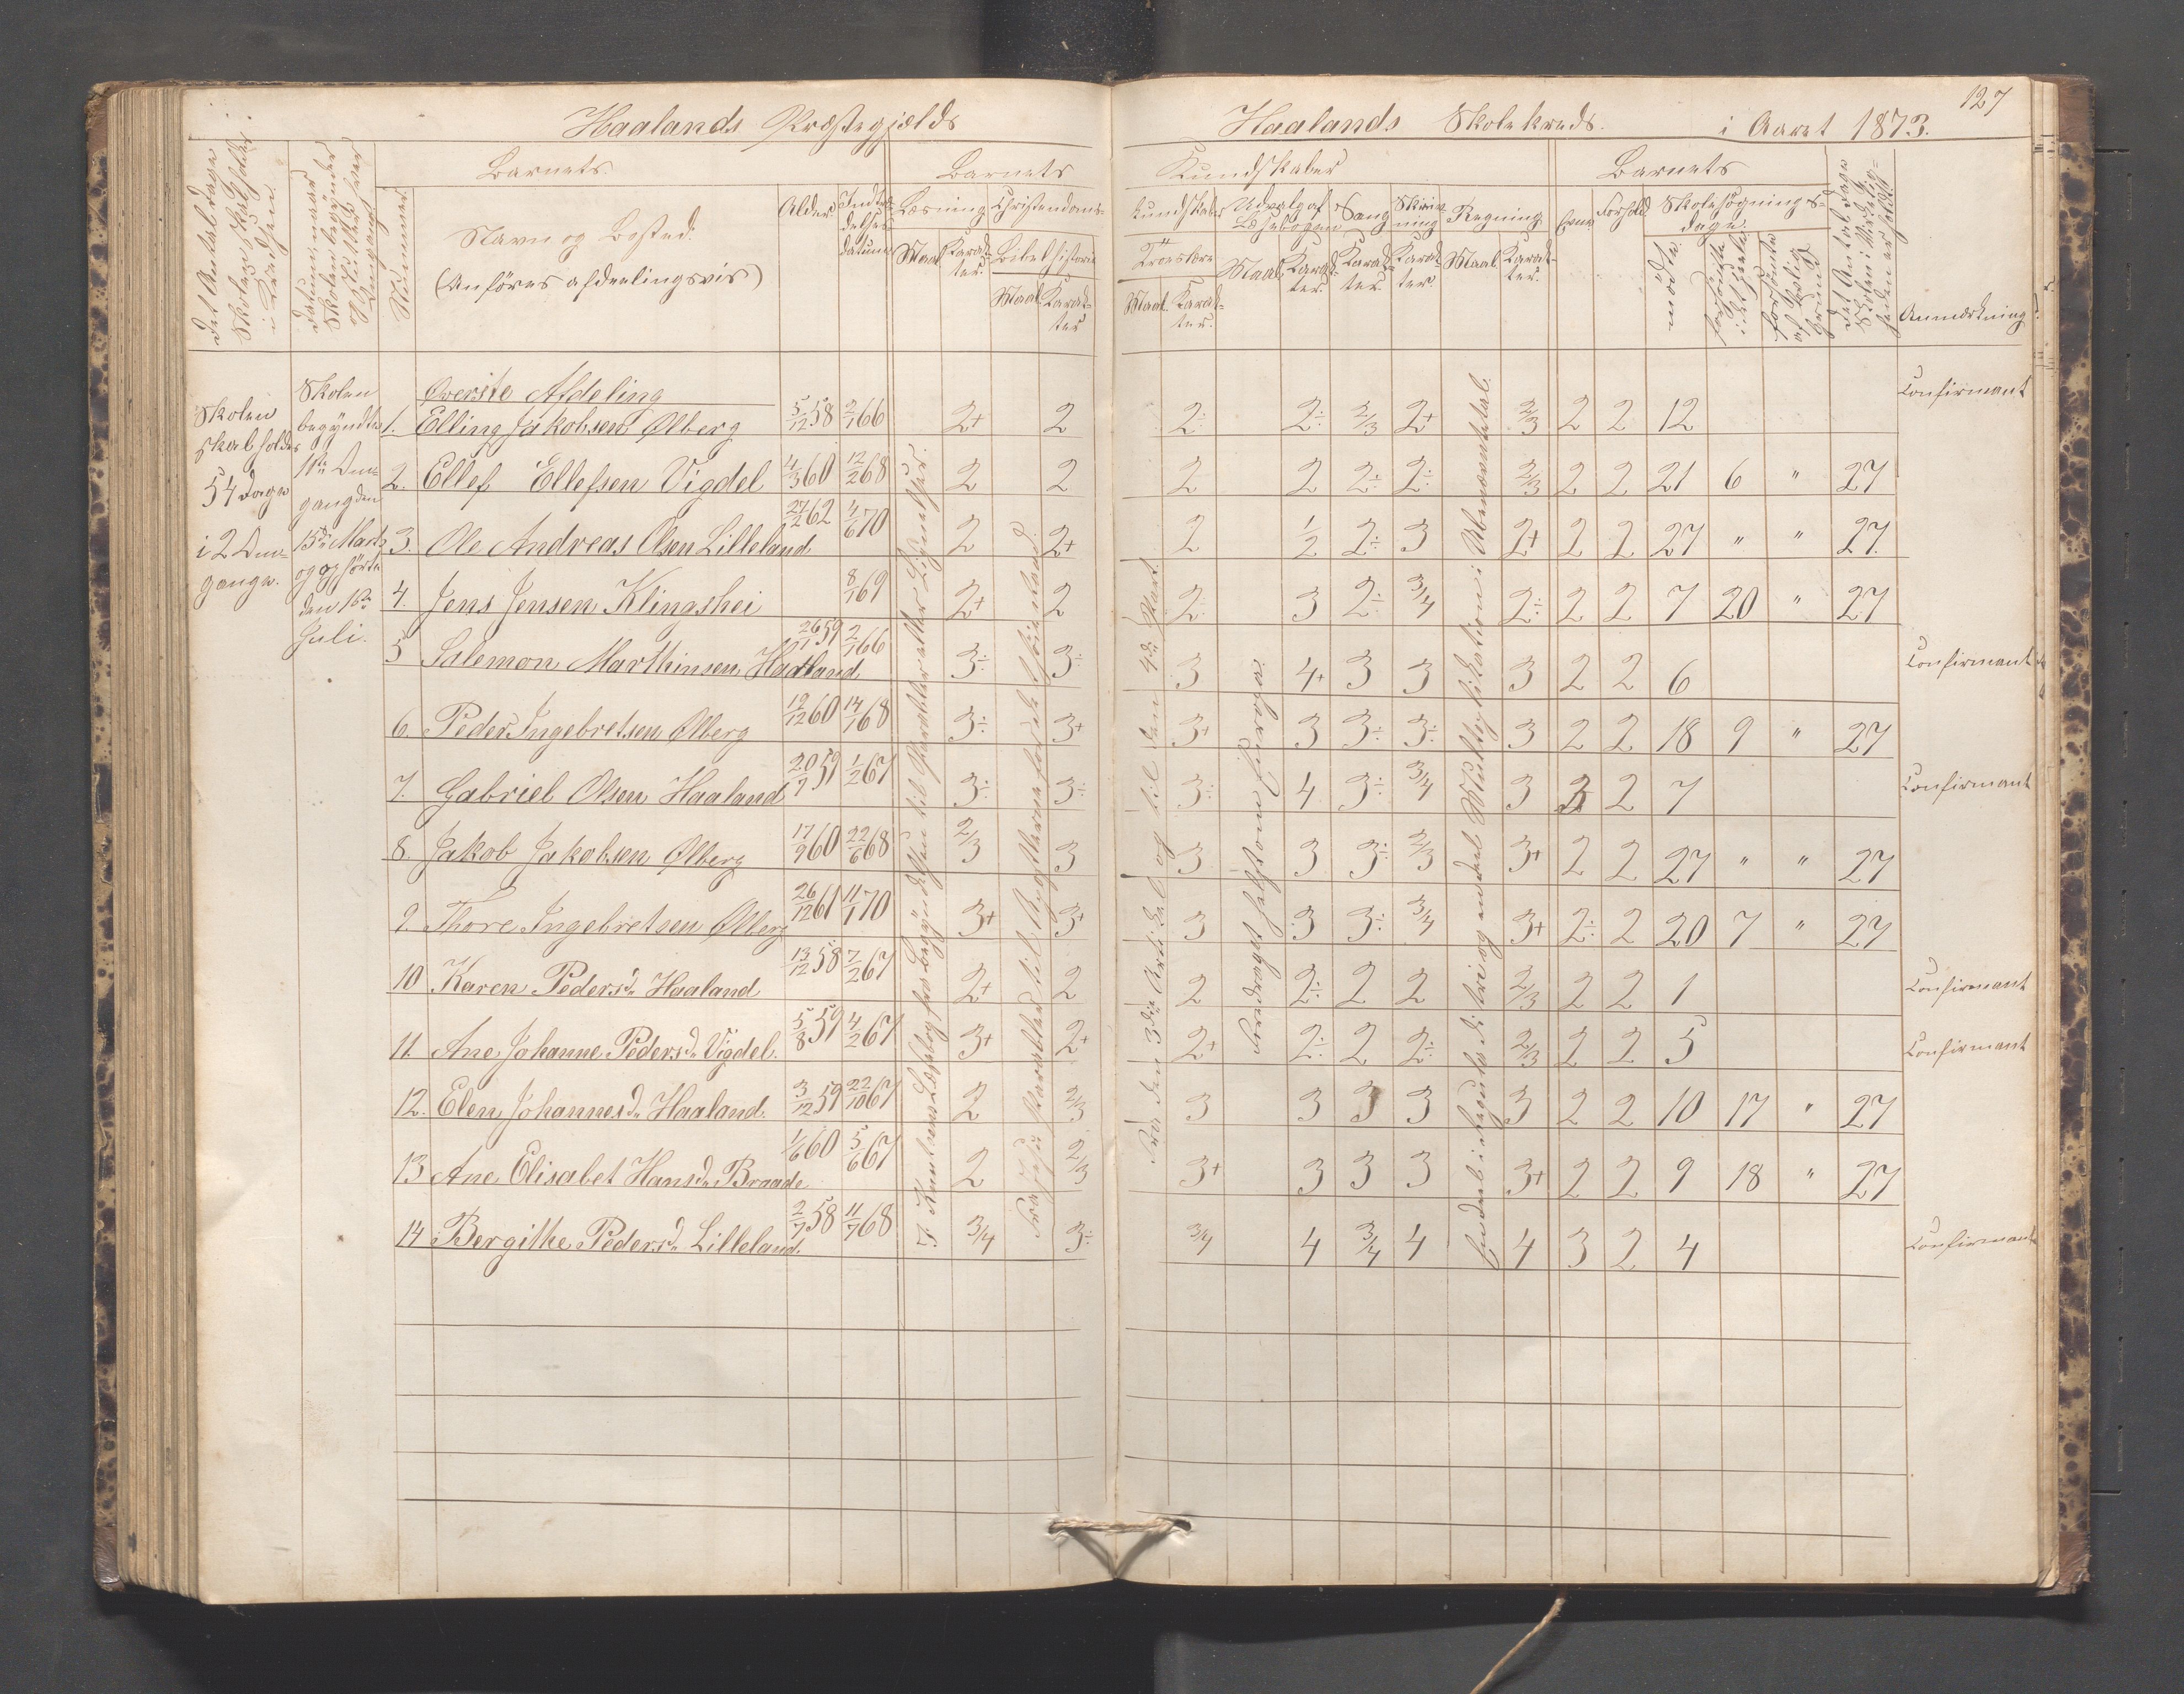 127
Haalands Præstegjælds Haalands Skolekreds. i Aaret 1873.
Barnets Barnets Kundskaber Barnets
Det Antal Dage Skolen skal holdes i Kredsen.
Datum, naar Skolen begynder og sluttes hver Omgang
Nummer
Navn og Bosted.
(Anføres afdelingsvis)
Alder. Indtrædelses datum
Læsning Christendoms- kundskab Udvalg af Læsebogen Sang Skrivning Regning Evne Forhold Skolesøgnings- dage.
Maal Karakter. Bibelhistorie Troeslære Maal. Karakter. Karakter Karakter. Maal. Karakter.
Maal Karakter Maal. Karakter.
mødte forsømte i det Hele forsømte af lovlig Grund
Det Antal Dage Skolen i Virkeligheden er holdt.
Anmærkning.
Skolen skal holdes 54 Dage i 2 Omgange.
Skolen begyndte 1ste Omgang den 15de Marts og ophørte den 1ste Juli.
Øverste Afdeling
1. Elling Jakobsen Ølberg 5/12 58 2/1 66 2+ 2 2÷ 2÷ 2/3 2+ 2/3 2 2 12 Confirmant
2. Ellef Ellefsen Vigdel 4/3 60 12/2 68 2 2 2 2 2÷ 2÷ 2/3 2 2 21 6 " 27
3. Ole Andreas Olsen Lilleland 27/2 62 4/6 70 2 2+ 2 1/2 2÷ 3 2+ 2 2 27 " " 27.
4. Jens Jensen Klingshei 8/1 69 2+ 2 2÷ 3 2÷ 3/4 2÷ 2 2 7 20 " 27
5 Salemon Marthinsen Haaland 26/1 59 2/1 66 3÷ 3÷ 3 4+ 3 3 3 2 2 6 Confirmant
6. Peder Ingebretsen Ølberg 19/12 60 14/1 68 3÷ 3+ 3+ 3 3÷ 3÷ 3 2 2 18 9 " 27
7. Gabriel Olsen Haaland 20/9 59 1/2 67 3÷ 3÷ 3÷ 4 3÷ 3/4 3 3 2 7 Confirmant
8. Jakob Jakobsen Ølberg 17/9 60 22/6 68 2/3 3 3 3 3÷ 2/3 3+ 2 2 27 " " 27
9. Thore Ingebretsen Ølberg 26/12 61 11/1 70 3+ 3+ 3 3 3÷ 3/4 3+ 2÷ 2 20 7 " 27
10 Karen Pedersd. Haaland 13/12 58 7/2 67 2+ 2 2 2÷ 2 2 2/3 2 2 1 Confirmant
11. Ane Johanne Pedersd. Vigdel. 5/8 59 4/2 67 3+ 2+ 2+ 2÷ 2 2÷ 2/3 2 2 5 Confirmant
12. Elen Johannesd. Haaland. 3/12 59 22/10 67 2 2/3 3 3 3 3 3 2 2 10 17 " 27
13 Ane Elisabet Hansd. Braade 1/6 60 5/6 67 2 2/3 3+ 3 3 3 3+ 2 2 9 18 " 27
14 Bergithe Pedersd. Lilleland. 2/7 58 11/7 68 3/4 3÷ 3/4 4 3/4 4 4 3 2 4 Confirmant
Fra den 3die Artikel og til den 4de Part.